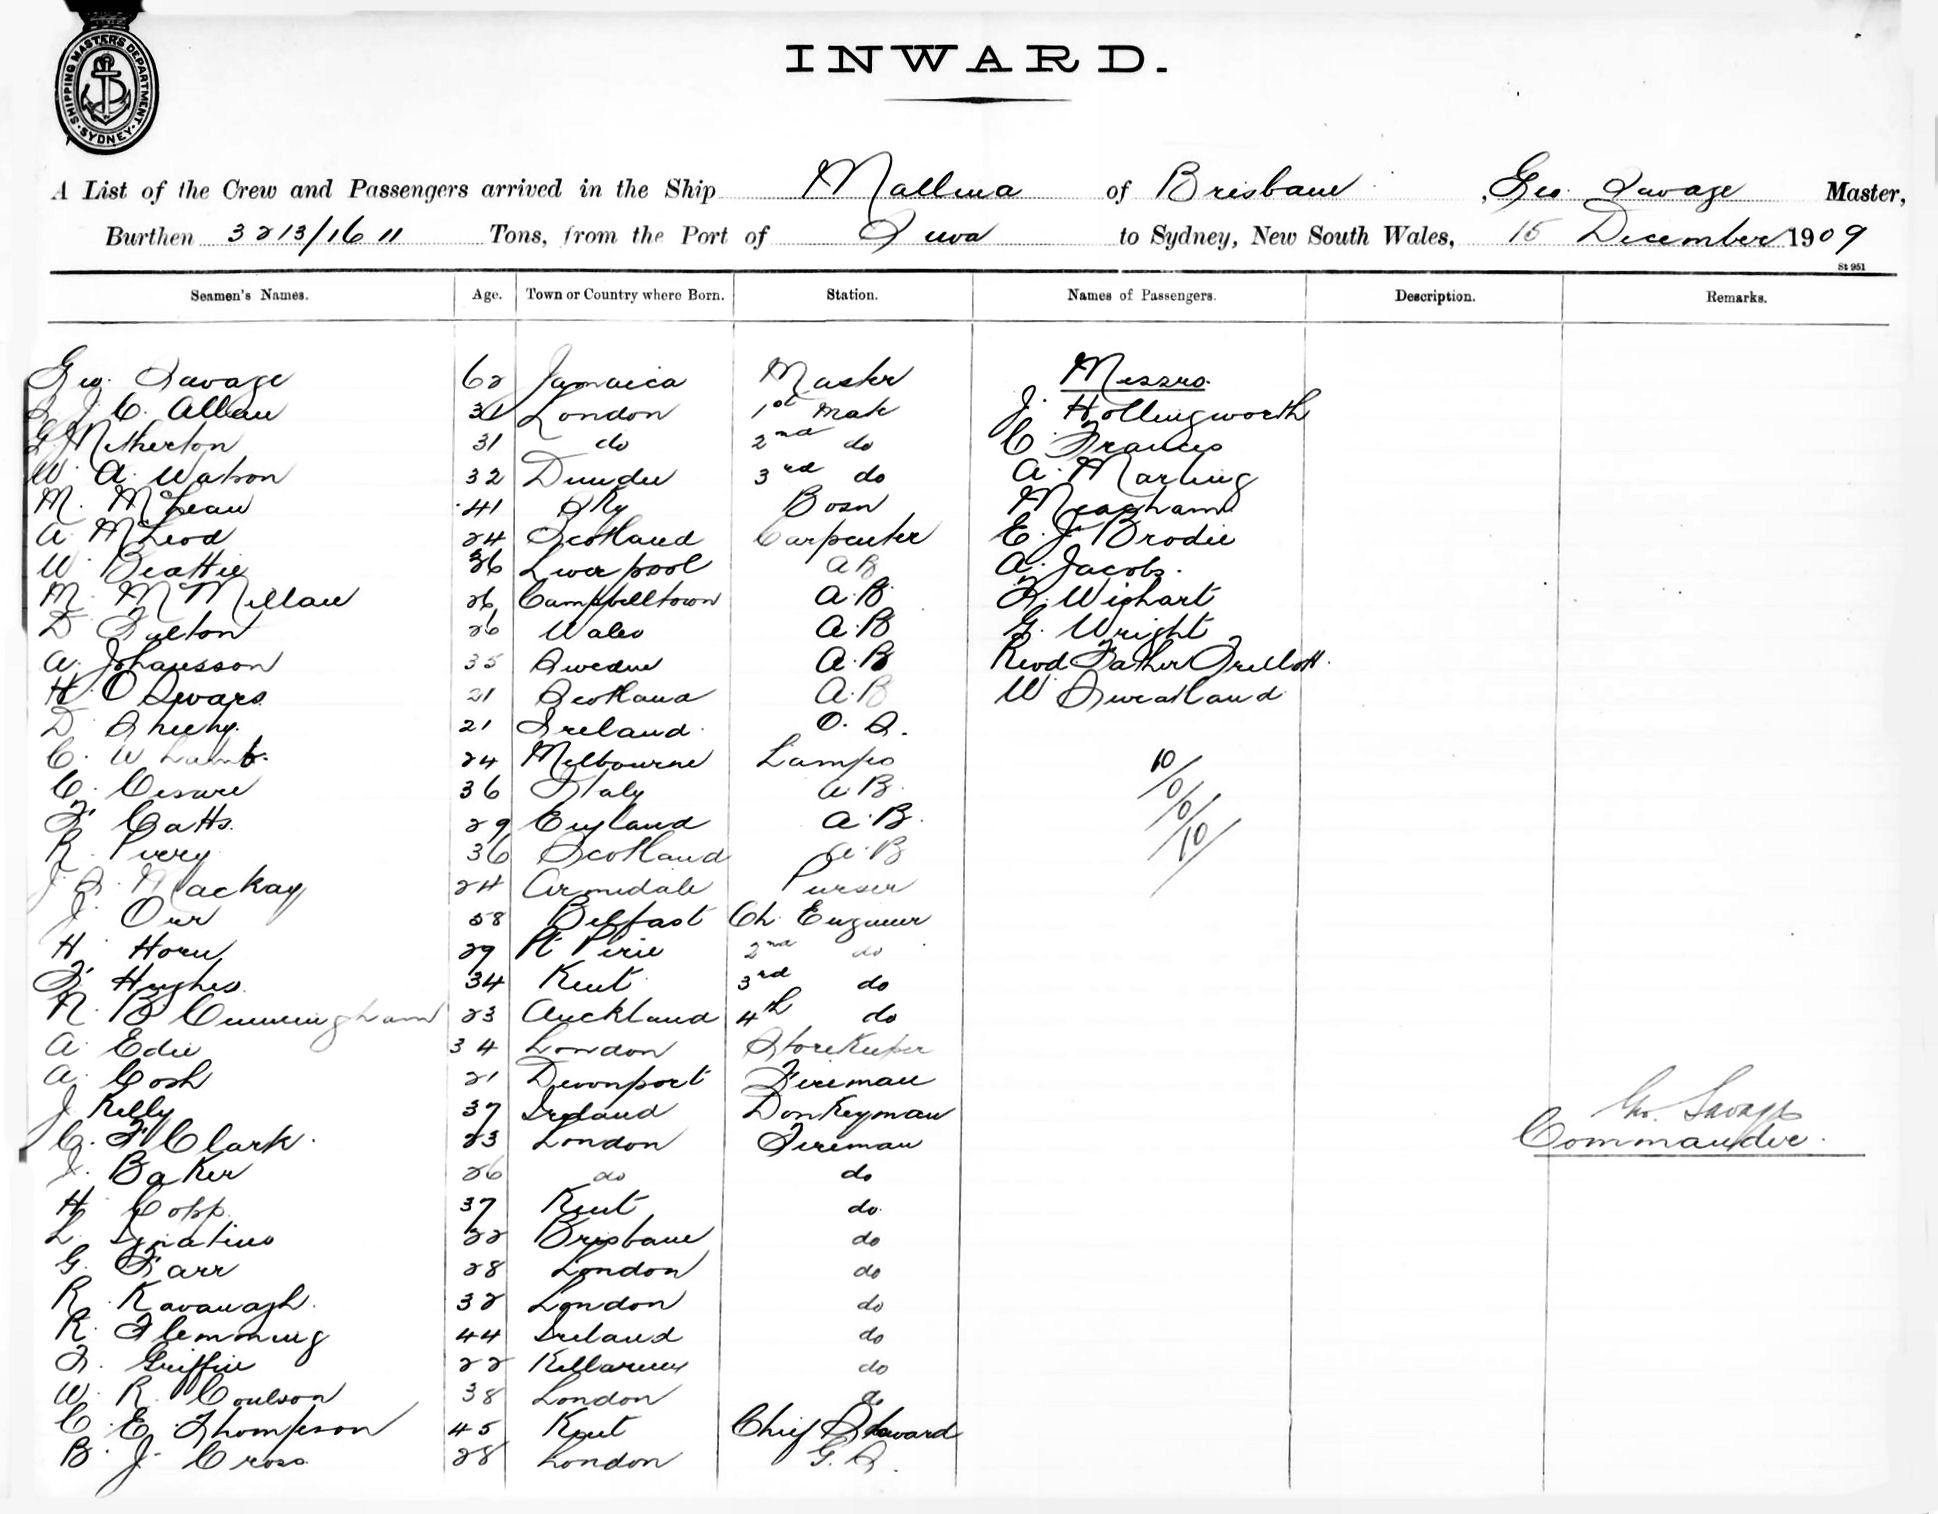 SHIPPING MASTERS DEPARTMENT · SYDNEY ·
INWARD.
A List of the Crew and Passengers arrived in the Ship Mallina of Brisbane, Geo. Savage Master,
Burthen 3213/1611 Tons, from the Port of Suva to Sydney, New South Wales, 15 December 1909
St 951
Seamen's Names. Age. Town or Country where Born. Station. Names of Passengers. Description. Remarks.
Geo. Savage 62 Jamaica Master Messrs.
J. C. Allan London 1st Mate J. Hollingworth
G Netherton 31 do 2nd do C. Francis
W. A. Watson 32 Dundee 3rd do A. Marling
M. McLean 41 Sky Bosn Meacham
A McLeod 24 Scotland Carpenter E. J. Brodie
W Beattie 36 Liverpool AB A. Jacobs.
M. McMillan 26 Campbelltown A.B. F. Wighart
D Fulton 26 Wales A.B G. Wright
A. Johansson 35 Sweden A.B Revd Father
H. O Sewars 21 Scotland A.B W Sweatland
D Sheehy. 21 Ireland. O.S.
C. W Lamb. 24 Melbourne Lamps 10/
C. Cesare 36 Italy A B. 10/
F. Catts. 29 England A.B. 10/
R. Perry 36 Scotland A.B 10/
J. S. Mackay 24 Armidale Purser
J. Orr 58 Belfast Ch. Engineer
H. Horn 29 Pt Pirie 2nd do
F. Hughes. 34 Kent 3rd do
N. B Cunningham 23 Auckland 4th do
A Edie 34 London Storekeeper
A. Cosh 21 Devonport Fireman
J Kelly 37 Ireland Donkeyman Geo. Savage
C. F Clark. 23 London Fireman Commander.
J. Baker 26 do do
H Copp. 37 Kent do.
L. Ignatius 22 Brisbane do
G. Farr 28 London do
R. Kavanagh. 32 London do
R. Flemming 44 Ireland do
F. Griffin 22 Killarney do
W. R. Coulson 38 London do
C. E. Thompson 45 Kent Chief Steward
B. J. Cross 28 London G.S.